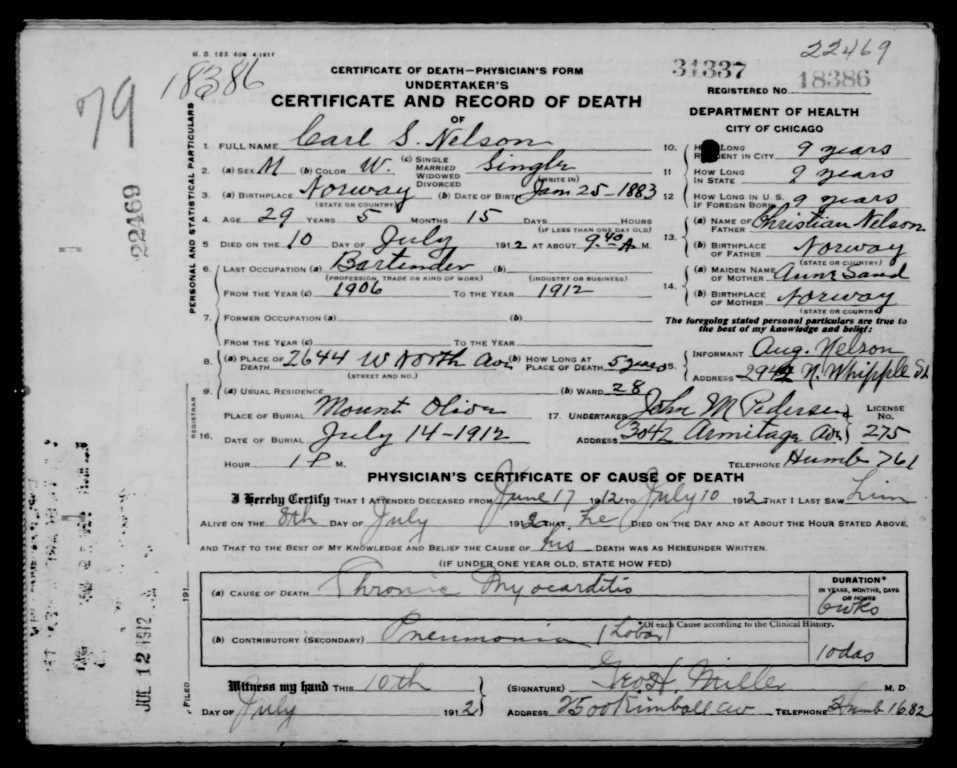 22469
18386
79
31337
CERTIFICATE OF DEATH—PHYSICIAN'S FORM
UNDERTAKER'S
CERTIFICATE AND RECORD OF DEATH
OF
REGISTERED NO. 18386
DEPARTMENT OF HEALTH
CITY OF CHICAGO
PERSONAL AND STATISTICAL PARTICULARS
22469
1. FULL NAME Carl S. Nelson
2. (a) SEX M (b) COLOR W. (c) SINGLE MARRIED WIDOWED DIVORCED Single
(WRITE IN)
3. (a) BIRTHPLACE Norway (b) DATE OF BIRTH Jan 25-1883
(STATE OR COUNTRY)
4. AGE 29 YEARS 5 MONTHS 15 DAYS HOURS
(IF LESS THAN ONE DAY OLD)
5 DIED ON THE 10 DAY OF July 1912 AT ABOUT 9.40 A. M.
6. LAST OCCUPATION (a) Bartender (b)
(PROFESSION, TRADE OR KIND OF WORK) (INDUSTRY OR BUSINESS)
FROM THE YEAR (c) 1906 TO THE YEAR 1912
7. FORMER OCCUPATION (a) (b)
FROM THE YEAR (c) TO THE YEAR
8. (a) PLACE OF DEATH 2644 W North Ave (b) HOW LONG AT PLACE OF DEATH 5 years
(STREET AND NO.)
9. (a) USUAL RESIDENCE (b) WARD 28
PLACE OF BURIAL Mount Olive
16. DATE OF BURIAL July 14-1912
HOUR 1 P M.
REGISTRAR
10. HOW LONG RESIDENT IN CITY 9 years
11 HOW LONG IN STATE 9 years
12 HOW LONG IN U. S. IF FOREIGN BORN 9 years
13. (a) NAME OF FATHER Christian Nelson
(b) BIRTHPLACE OF FATHER Norway
(STATE OR COUNTRY)
14. (a) MAIDEN NAME OF MOTHER Sand
(b) BIRTHPLACE OF MOTHER Norway
(STATE OR COUNTRY)
The foregoing stated personal particulars are true to
the best of my knowledge and belief:
15. INFORMANT Aug. Nelson
ADDRESS N. Whipple St
17. UNDERTAKER John M Pedersen LICENSE No.
ADDRESS 3042 Armitage Ave 275
TELEPHONE Humb 761
PHYSICIAN'S CERTIFICATE OF CAUSE OF DEATH
I Hereby Certify THAT I ATTENDED DECEASED FROM June 17 1912 TO July 10 1912 THAT I LAST SAW him
ALIVE ON THE 8th DAY OF July 1912 THAT he DIED ON THE DAY AND AT ABOUT THE HOUR STATED ABOVE,
AND THAT TO THE BEST OF MY KNOWLEDGE AND BELIEF THE CAUSE OF his DEATH WAS AS HEREUNDER WRITTEN.
(IF UNDER ONE YEAR OLD, STATE HOW FED)
(a) CAUSE OF DEATH Chronic Myocarditis
DURATION*
IN YEARS, MONTHS, DAYS
OR HOURS
6 wks
Of each Cause according to the Clinical History.
(b) CONTRIBUTORY (SECONDARY) Pneumonia (Lobar)
10 das
191
FILED
JUL 12 1912
Witness my hand THIS 10th
DAY OF July 1912
(SIGNATURE) Geo H Miller M. D
ADDRESS 2500 Kimball av TELEPHONE Humb 1682